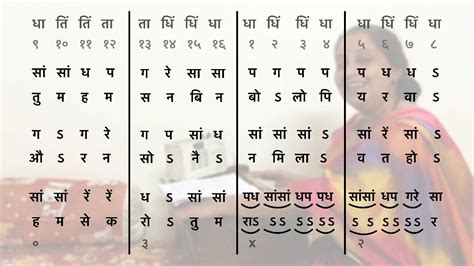 धा तिं तिं ता ता धिं धिं धा धा धिं धिं धा धा धिं धिं धा
९ १० ११ १२ १३ १४ १५ १६ १ २ ३ ४ ५ ६ ७ ८
सां सां ध प ग रे सा सा प ग प प प ध ध ऽ
तु म ह म स न बि न बो ऽ लो पि य र वा ऽ
ग ऽ ग रे ग प सां ध सां सां सां ऽ सां रें सां ऽ
औ ऽ र न सो ऽ नै ऽ न मि ला ऽ व त हो ऽ
सां सां रें रें ध ऽ सां सां पध सांसां धप पध सांसां धप गरे सा
ह म से क रो ऽ तु म राऽ ऽऽ ऽऽ ऽऽ ऽऽ ऽऽ ऽऽ र
० ३ x २